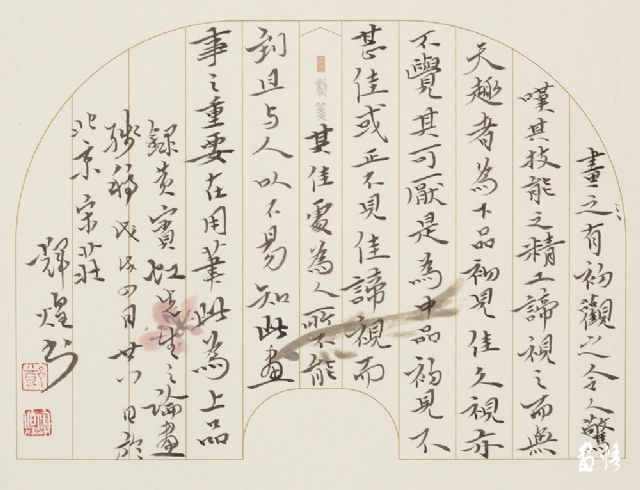 畫之有初觀之令人驚
嘆其技能之精工諦視之而無
天趣者為下品初見佳久視亦
不覺其可厭是為中品初見不
甚佳或正不見佳諦視而
其佳處為人所不能
到且与人以不易知此畫
事之重要在用筆此為上品
錄黄賓虹先生之論畫
殘稿戊戌四月廿八日於
北京宋莊
輝煌书